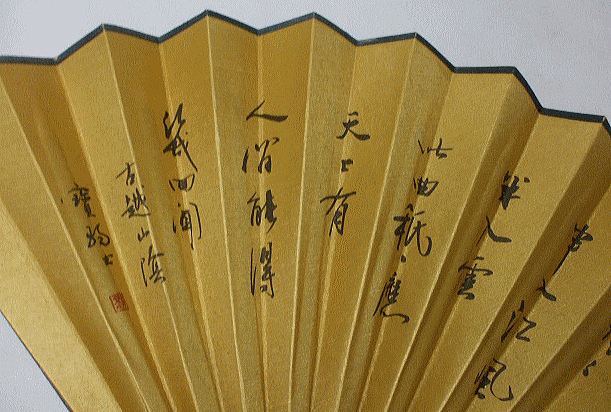 半入江風
半入雲
此曲祇應
天上有
人間能得
幾回聞
古越山陰
寶